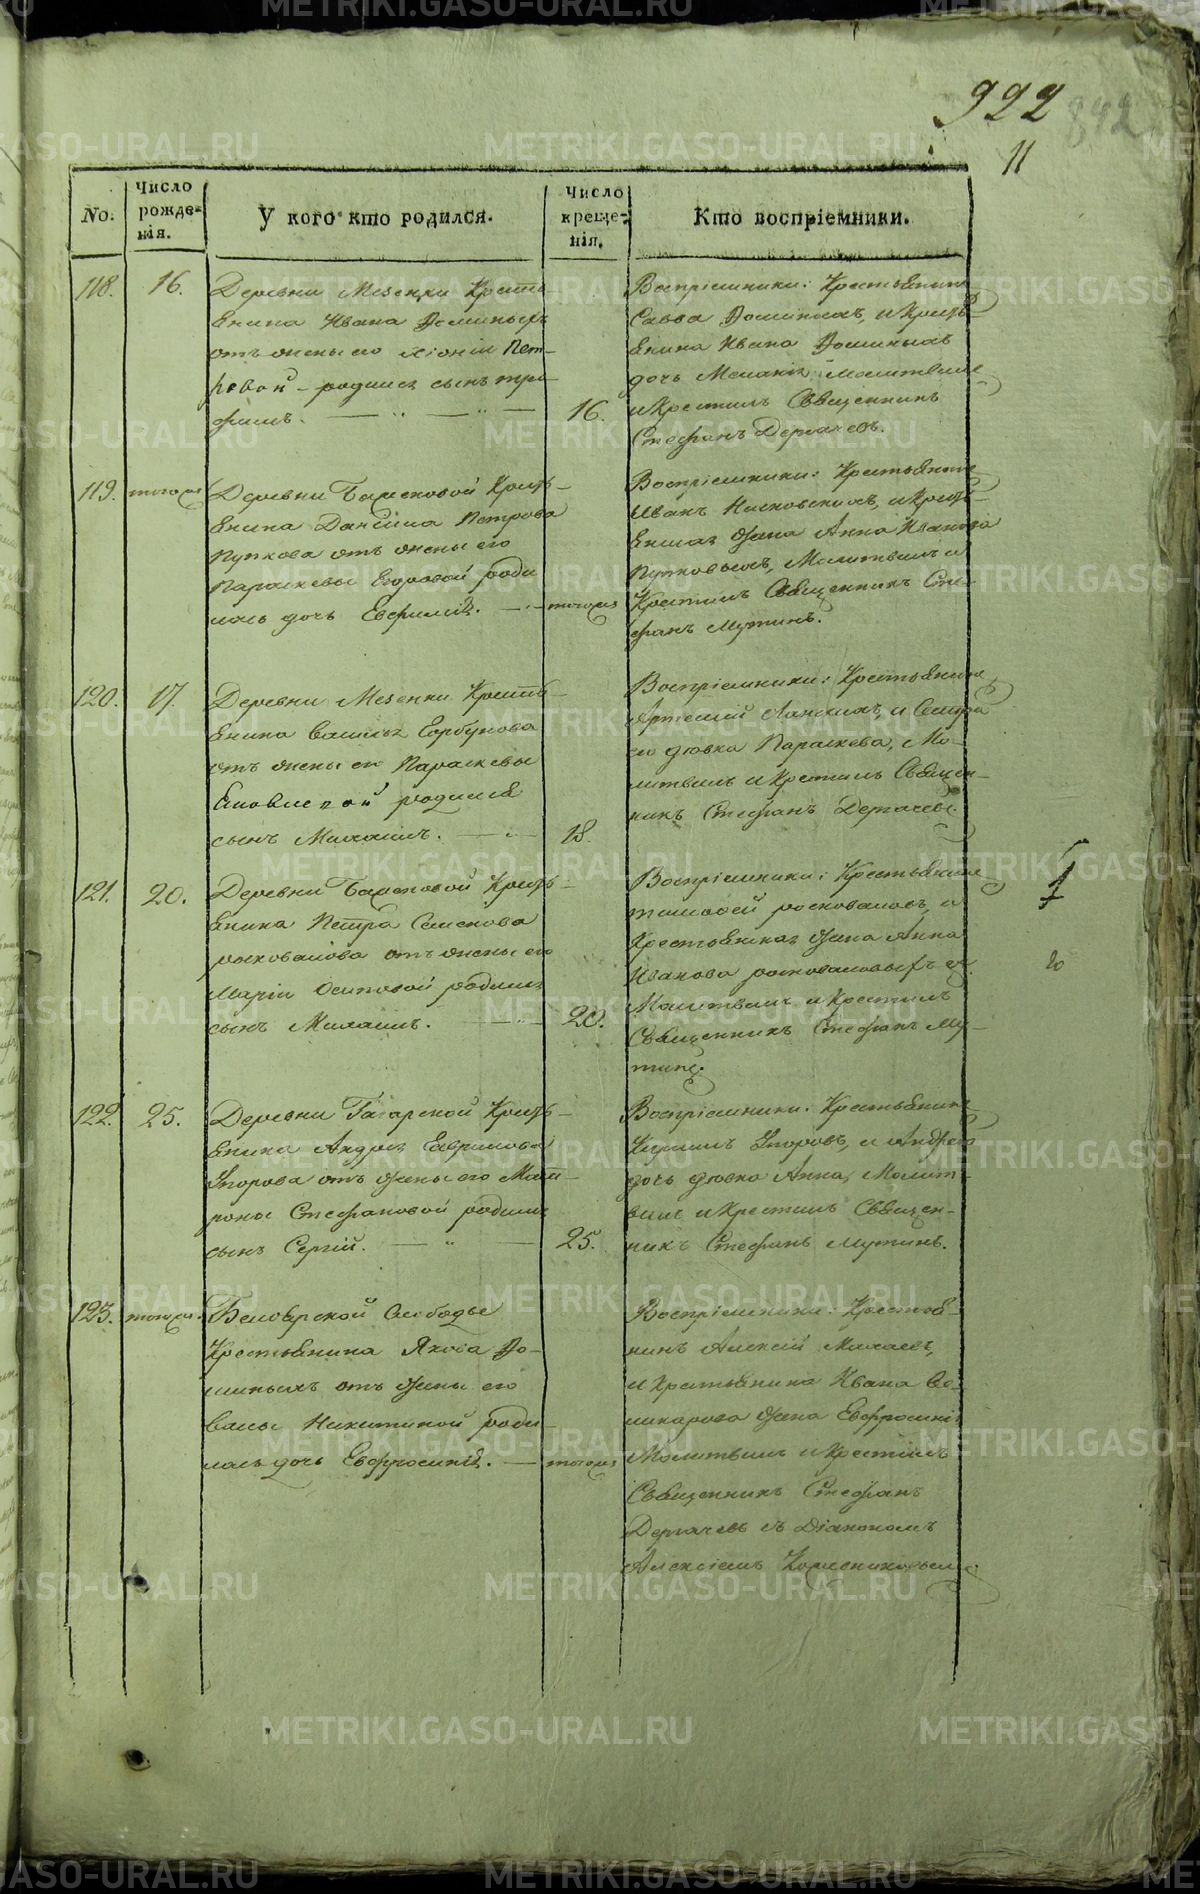 922
842
11
No.
Число рожде=нія.
У кого кто родился.
Число креще=нія.
Кто воспріемники.
118.
16.
Деревни Мезенки Кресть-
янина Ивана Доминыхъ
отъ жены его Ксіоніи Пет-
ровой - родился сынъ Тро-
фимъ.
16.
Воспріемники: Крестьянинъ
Савва Доминыхъ, и Кресть-
янина Ивана Доминыхъ
дочь Меланія Молитвилъ
и Крестилъ Священникъ
Стефанъ Дергачевъ.
119.
тогожъ
Деревни Кресть-
янина Даніила Петрова
Пупкова отъ жены его
Параскевы роди-
лась дочь Евфимія.
тогожъ
Воспріемники: Крестьянинъ
Иванъ и Кресть-
Жена Анна Иванова
Пупковыхъ, Молитвилъ и
Крестилъ Священникъ Сте-
фанъ Мутинъ.
120.
17.
Деревни Мезенки Кресть-
янина Василья Горбунова
отъ жены его Параскевы
родился
сынъ Михаилъ.
18.
Воспріемники: Крестьянинъ
Артемій и
его дѣвка Параскева, Мо-
литвилъ и Крестилъ Священ-
никъ Стефанъ Дергачевъ
121.
20.
Деревни Кресть-
янина Петра Семенова
отъ жены его
Маріи Осиповой родился
сынъ Михаилъ.
20.
Воспріемники: Крестьянинъ
Тимофей и
Жена Анна
Иванова
Молитвилъ и Крестилъ
Священникъ Стефанъ Му-
тинъ.
20
122.
25.
Деревни Гагарской Кресть-
янина Андрея Гаврилова
Упорова отъ Жены его Мат-
роны Стефановой родился
сынъ Сергій.
25.
Воспріемники: Крестьянинъ
Кирилъ Упоровъ, и Андрея
дочь дѣвка Анна, Молит-
вилъ и Крестилъ Священ-
никъ Стефанъ Мутинъ.
123.
тогожъ.
Белоярской Слободы
Крестьянина Якова До-
миныхъ отъ Жены его
Васы Никитиной роди-
лась дочь Евфросинія.
тогожъ
Воспріемники: Крестья-
нинъ Алексій
и Крестьянина Ивана
Жена Евфросинія
Молитвилъ и Крестилъ
Священникъ Стефанъ
Дергачевъ съ Діакономъ
Алексіемъ
METRIKI.GASO-URAL.RU